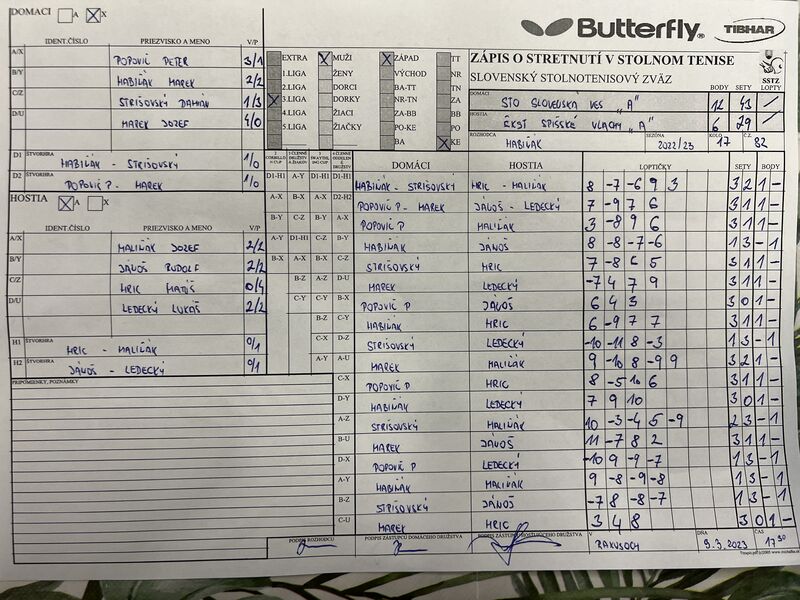 DOMACI A X
IDENT.ČÍSLO PRIEZVISKO A MENO V/P
A/X POPOVIČ PETER 3/1
B/Y HABIŇÁK MAREK 2/2
C/Z STRIŠOVSKÝ DAMIÁN 1/3
D/U MAREK JOZEF 4/0
D1 ŠTVORHRA HABIŇÁK - STRIŠOVSKÝ 1/0
D2 ŠTVORHRA POPOVIČ P - MAREK 1/0
HOSTIA A X
IDENT.ČÍSLO PRIEZVISKO A MENO V/P
A/X MALIŇÁK JOZEF 2/2
B/Y JÁNOŠ RUDOLF 2/2
C/Z HRIC MATÚŠ 0/4
D/U LEDECKÝ LUKÁŠ 2/2
H1 ŠTVORHRA HRIC - MALIŇÁK 0/1
H2 ŠTVORHRA JÁNOŠ - LEDECKÝ 0/1
PRIPOMIENKY, POZNÁMKY
Butterfly TIBHAR
EXTRA MUŽI ZÁPAD TT
1.LIGA ŽENY VÝCHOD NR
2.LIGA DORCI BA-TT TN
3.LIGA DORKY NR-TN ZA
4.LIGA ŽIACI ZA-BB BB
5.LIGA ŽIAČKY PO-KE PO
BA KE
ZÁPIS O STRETNUTÍ V STOLNOM TENISE
SLOVENSKÝ STOLNOTENISOVÝ ZVÄZ
SSTZ
BODY SETY LOPTY
DOMÁCI STO SLOVENSKÁ VES "A" 12 43 /
HOSTIA EKST SPIŠSKÉ VLACHY "A" 6 29 /
ROZHODCA HABIŇÁK SEZÓNA 2022/23 KOLO 17 Č. 82
DOMÁCI HOSTIA LOPTIČKY SETY BODY
D1-H1 A-Y D1-H1 HABIŇÁK - STRIŠOVSKÝ HRIC - MALIŇÁK 8 -7 -6 9 3 3 2 1 -
A-X B-X A-X D2-H2 POPOVIČ P - MAREK JÁNOŠ - LEDECKÝ 7 -9 7 6 3 1 1 -
B-Y C-Z B-Y A-X POPOVIČ P MALIŇÁK 3 -8 9 6 3 1 1 -
A-Y D1-H1 C-Z B-Y HABIŇÁK JÁNOŠ 8 -8 -7 -6 1 3 - 1
B-X A-X B-X C-Z STRIŠOVSKÝ HRIC 7 -8 6 5 3 1 1 -
B-Z A-Z D-U MAREK LEDECKÝ -7 4 7 9 3 1 1 -
C-Y C-Y B-X POPOVIČ P JÁNOŠ 6 4 3 3 0 1 -
B-Z C-Y HABIŇÁK HRIC 6 -9 7 7 3 1 1 -
C-X D-Z STRIŠOVSKÝ LEDECKÝ -10 -11 8 -3 1 3 - 1
A-Y A-U MAREK MALIŇÁK 9 -10 8 -9 9 3 2 1 -
C-X POPOVIČ P HRIC 8 -5 10 6 3 1 1 -
D-Y HABIŇÁK LEDECKÝ 7 9 10 3 0 1 -
A-Z STRIŠOVSKÝ MALIŇÁK 10 -3 -4 5 -9 2 3 - 1
B-U MAREK JÁNOŠ 11 -7 8 2 3 1 1 -
D-X POPOVIČ P LEDECKÝ -10 9 -9 -7 1 3 - 1
A-Y HABIŇÁK MALIŇÁK 9 -8 -9 -8 1 3 - 1
B-Z STRIŠOVSKÝ JÁNOŠ -7 8 -8 -7 1 3 - 1
C-U MAREK HRIC 3 4 8 3 0 1 -
PODPIS ROZHODCU PODPIS ZÁSTUPCU DOMÁCEHO DRUŽSTVA PODPIS ZÁSTUPCU HOSŤUJÚCEHO DRUŽSTVA V RAKUSOCH DŇA 9.3.2023 ČAS 17 30